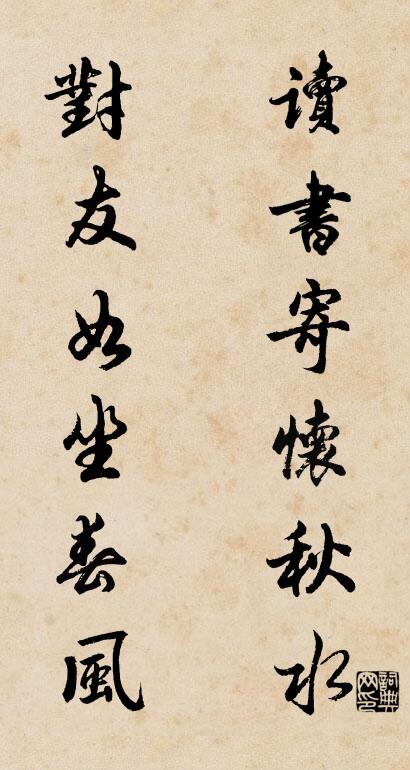 讀書寄懷秋水
對友如坐春風
詞典網印